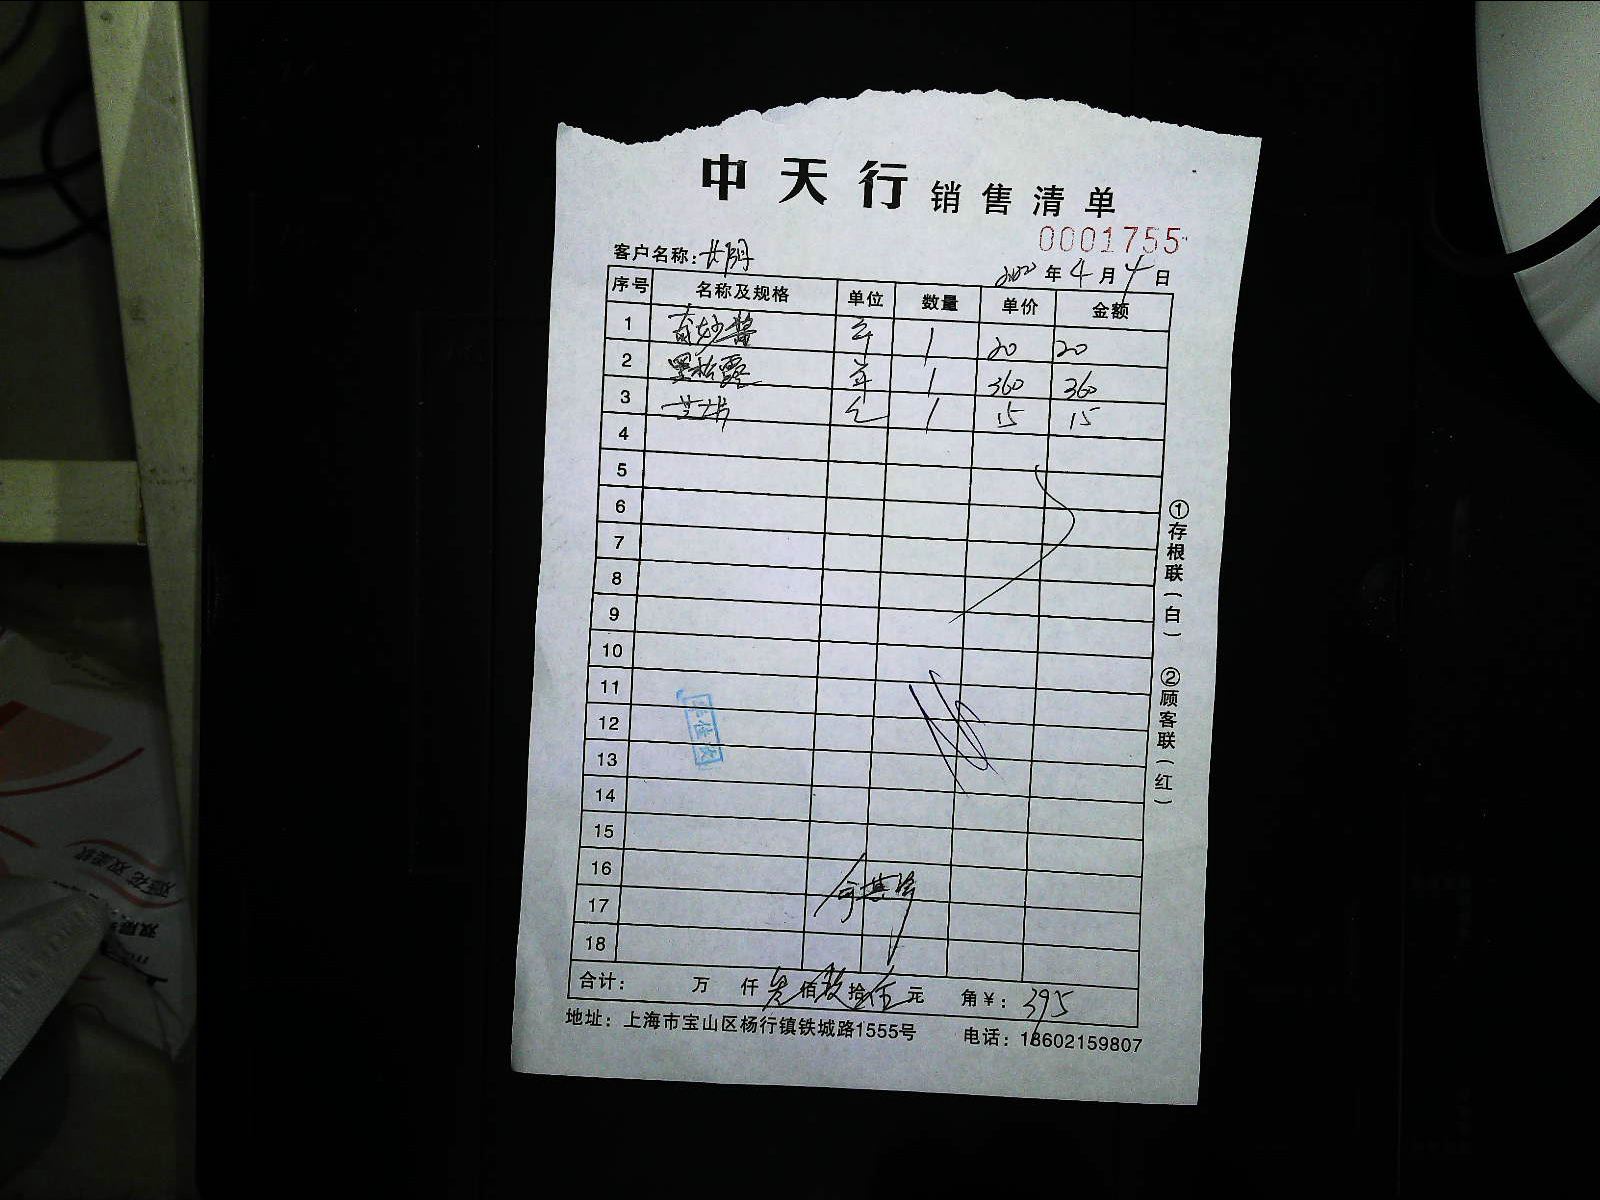 中天行 销售清单
0001755
客户名称:
年 4 月 4 日
序号 名称及规格 单位 数量 单价 金额
1 奇妙酱 1 20 20
2 黑松露 1 360 360
3 芝士片 1 15 15
4
5
6
7
8
9
10
11
12
13
14
15
16
17
18
合计: 万 仟 叁 佰 玖 拾 伍 元 角 ¥: 395
地址: 上海市宝山区杨行镇铁城路1555号 电话: 18602159807
①存根联(白) ②顾客联(红)
双层